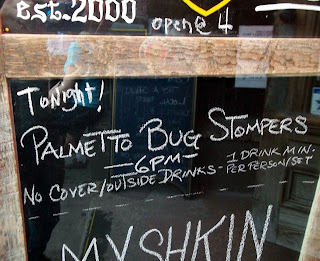 est. 2000
open@4
Tonight!
PALMETTO BUG STOMPERS
-6PM-
NO COVER/OUTSIDE DRINKS - 1 DRINK MIN. PER PERSON/SET
MYSHKIN